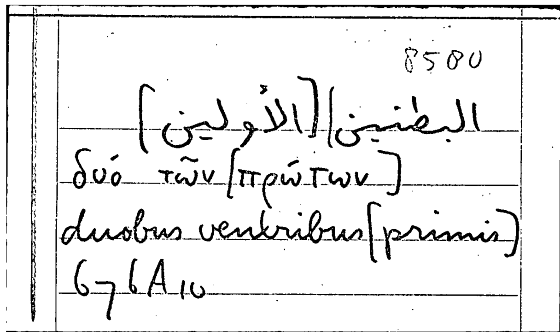 8580
البطنين [الأولين]
δυό τῶν [πρώτων]
duobus ventribus [primis]
676A10